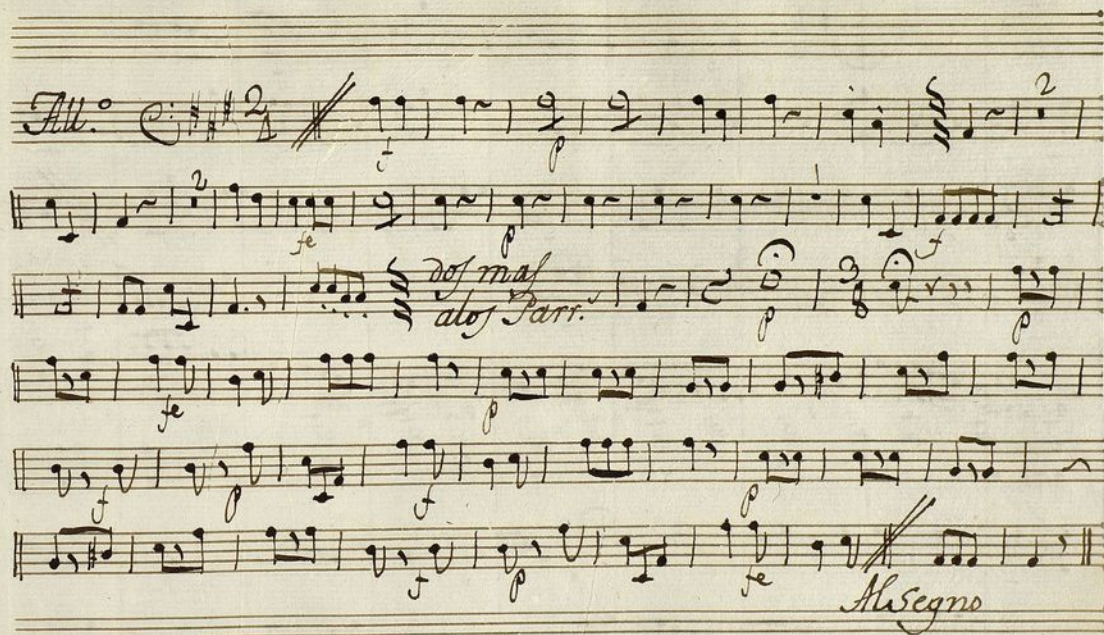 All.º 2 4 2
f p
2
fe p f
dos mas
alos Parr.s
3 8
p p
fe p
f p f p
f p fe
Al Segno